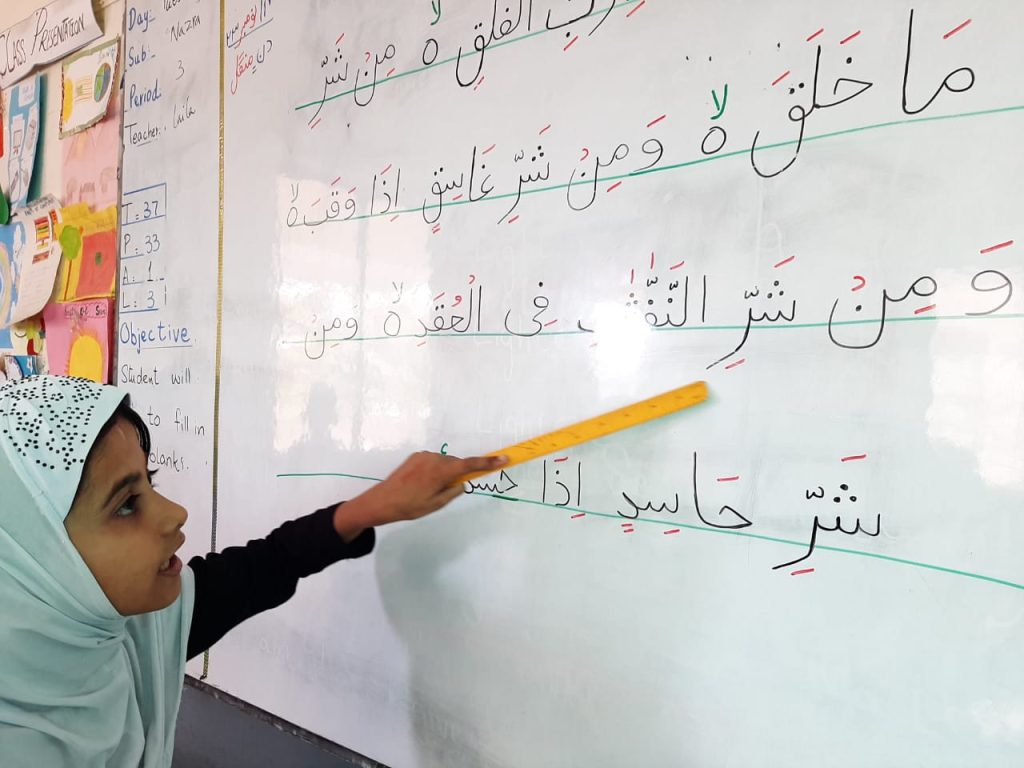 CLASS PRESENTATION
Day:
Sub:- Nazra
Period. 3
Teacher. Laila
T: 37
P: 33
A: 1
L: 3
Objective
Student will
to fill in
blanks.
رَبِّ الْفَلَقِ ۝ لا مِنْ شَرِّ
مَا خَلَقَ ۝ لا وَمِنْ شَرِّ غَاسِقٍ اِذَا وَقَبَ ۝ لا
وَ مِنْ شَرِّ النَّفّٰثٰتِ فِى الْعُقَدِ ۝ لا وَمِنْ
شَرِّ حَاسِدٍ اِذَا حَسَدَ